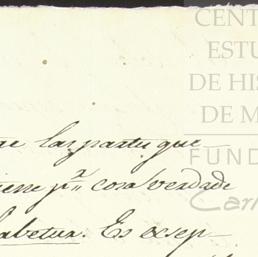 CENT
ESTU
DE HIS
DE M
FUND
Carl
ae las partes que
iene pr. cosa verdade
abetur. Es excep